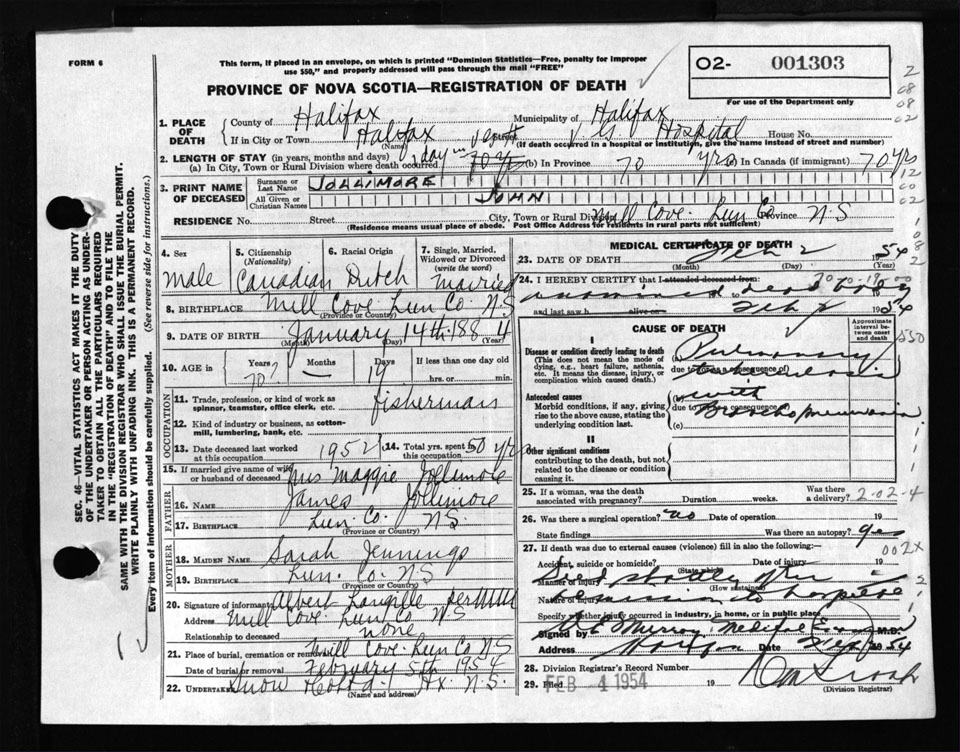 FORM 6
This form, if placed in an envelope, on which is printed "Dominion Statistics—Free, penalty for improper
use $50," and properly addressed will pass through the mail "FREE"
O2- 001303
PROVINCE OF NOVA SCOTIA—REGISTRATION OF DEATH
For use of the Department only
1. PLACE OF DEATH
County of Halifax Municipality of Halifax
If in City or Town Halifax Street V. G. Hospital House No.
(Name) (If death occurred in a hospital or institution, give the name instead of street and number)
2. LENGTH OF STAY (in years, months and days)
(a) In City, Town or Rural Division where death occurred 1 day (b) In Province 70 yrs (c) In Canada (if immigrant) 70 yrs
3. PRINT NAME OF DECEASED
Surname or Last Name JOLLIMORE
All Given or Christian Names JOHN
RESIDENCE No. Street City, Town or Rural Division Mill Cove. Lun Co Province N.S
(Residence means usual place of abode. Post Office Address for residents in rural parts not sufficient)
4. Sex 5. Citizenship (Nationality) 6. Racial Origin 7. Single, Married, Widowed or Divorced (write the word)
Male Canadian Dutch Married
8. BIRTHPLACE Mill Cove Lun Co. N.S
(Province or Country)
9. DATE OF BIRTH January 14th 1884
(Month) (Day) (Year)
10. AGE in Years 70 Months — Days 19 If less than one day old
hrs. or min.
OCCUPATION
11. Trade, profession, or kind of work as spinner, teamster, office clerk, etc. fisherman
12. Kind of industry or business, as cotton-mill, lumbering, bank, etc.
13. Date deceased last worked at this occupation 1952 14. Total yrs. spent in this occupation 50 yrs
15. If married give name of wife or husband of deceased Mrs Maggie Jollimore
FATHER
16. NAME James Jollimore
17. BIRTHPLACE Lun. Co. N.S
(Province or Country)
MOTHER
18. MAIDEN NAME Sarah Jennings
19. BIRTHPLACE Lun. Co. N.S
(Province or Country)
20. Signature of informant Albert Langille
Address Mill Cove. Lun Co N.S
Relationship to deceased none
21. Place of burial, cremation or removal Mill Cove. Lun Co N.S
Date of burial or removal February 5th 1954
22. UNDERTAKER Snow Hx. N.S.
(Name and address)
MEDICAL CERTIFICATE OF DEATH
23. DATE OF DEATH Feb 2 1954
(Month) (Day) (Year)
24. I HEREBY CERTIFY that I attended deceased from:
examined dead body
and last saw h alive on Feb 1954
CAUSE OF DEATH
Approximate interval between onset and death
I
Disease or condition directly leading to death
(This does not mean the mode of dying, e.g., heart failure, asthenia, etc. It means the disease, injury, or complication which caused death.)
(a) Pulmonary
due to (or as a consequence of)
Antecedent causes
Morbid conditions, if any, giving rise to the above cause, stating the underlying condition last.
(b) with
due to (or as a consequence of)
Bronchopneumonia
(c)
II
Other significant conditions
contributing to the death, but not related to the disease or condition causing it.
25. If a woman, was the death associated with pregnancy? Duration weeks. Was there a delivery? 2-02-4
26. Was there a surgical operation? no Date of operation 19
State findings Was there an autopsy? yes
27. If death was due to external causes (violence) fill in also the following:— 002X
Accident, suicide or homicide? Date of injury 19
(State which)
Manner of injury Died shortly after
(How sustained)
Nature of injury admission to hospital
Specify whether injury occurred in industry, in home, or in public place
Signed by Medical Examiner M.D.
Address Halifax Date 1954
28. Division Registrar's Record Number
29. Filed FEB 4 1954 19
(Division Registrar)
SEC. 46—VITAL STATISTICS ACT MAKES IT THE DUTY
OF THE UNDERTAKER OR PERSON ACTING AS UNDER-
TAKER TO OBTAIN ALL THE PARTICULARS REQUIRED
IN THE "REGISTRATION OF DEATH" AND TO FILE THE
SAME WITH THE DIVISION REGISTRAR WHO SHALL ISSUE THE BURIAL PERMIT.
WRITE PLAINLY WITH UNFADING INK. THIS IS A PERMANENT RECORD.
Every item of information should be carefully supplied. (See reverse side for instructions.)